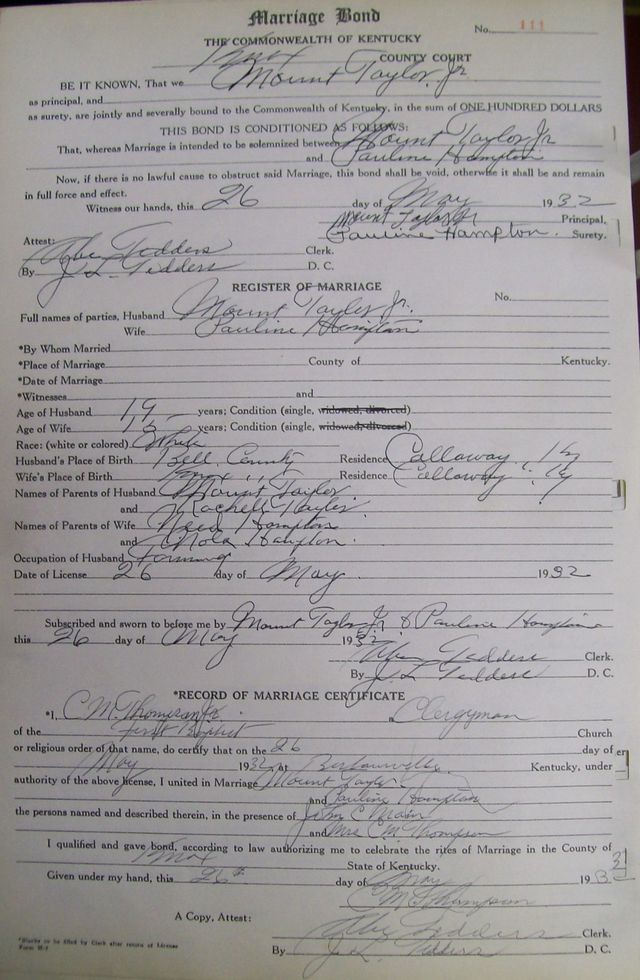 Marriage Bond
No. 111
THE COMMONWEALTH OF KENTUCKY
Knox COUNTY COURT
BE IT KNOWN, That we Mount Taylor, Jr
as principal, and
as surety, are jointly and severally bound to the Commonwealth of Kentucky, in the sum of ONE HUNDRED DOLLARS
THIS BOND IS CONDITIONED AS FOLLOWS:
That, whereas Marriage is intended to be solemnized between Mount Taylor Jr
and Pauline Hampton
Now, if there is no lawful cause to obstruct said Marriage, this bond shall be void, otherwise it shall be and remain
in full force and effect.
Witness our hands, this 26 day of May 1932
Mount Taylor Jr Principal,
Pauline Hampton. Surety.
Attest:
Clerk.
By D. C.
REGISTER OF MARRIAGE
No.
Full names of parties, Husband Mount Taylor Jr.
Wife Pauline Hampton
*By Whom Married
*Place of Marriage County of Kentucky.
*Date of Marriage
*Witnesses and
Age of Husband 19 years; Condition (single, widowed, divorced)
Age of Wife years; Condition (single, widowed, divorced)
Race: (white or colored) White
Husband's Place of Birth Bell County Residence Calloway Ky
Wife's Place of Birth Knox " Residence Calloway Ky
Names of Parents of Husband Mount Taylor
and Rachell Taylor
Names of Parents of Wife Hampton
and Hampton.
Occupation of Husband Farming
Date of License 26 day of May 1932
Subscribed and sworn to before me by Mount Taylor Jr & Pauline Hampton
this 26 day of May 1932
Clerk.
By D. C.
*RECORD OF MARRIAGE CERTIFICATE
*I, C M Thompson Jr. a Clergyman
of the First Baptist Church
or religious order of that name, do certify that on the 26 day of
May 1932 at Barbourville Kentucky, under
authority of the above license, I united in Marriage Mount Taylor
and Pauline Hampton
the persons named and described therein, in the presence of John C
and Mrs C M Thompson
I qualified and gave bond, according to law authorizing me to celebrate the rites of Marriage in the County of
Knox State of Kentucky.
Given under my hand, this 26th day of May 193
C M Thompson
A Copy, Attest:
Clerk.
By D. C.
*Blanks to be filled by Clerk after return of License